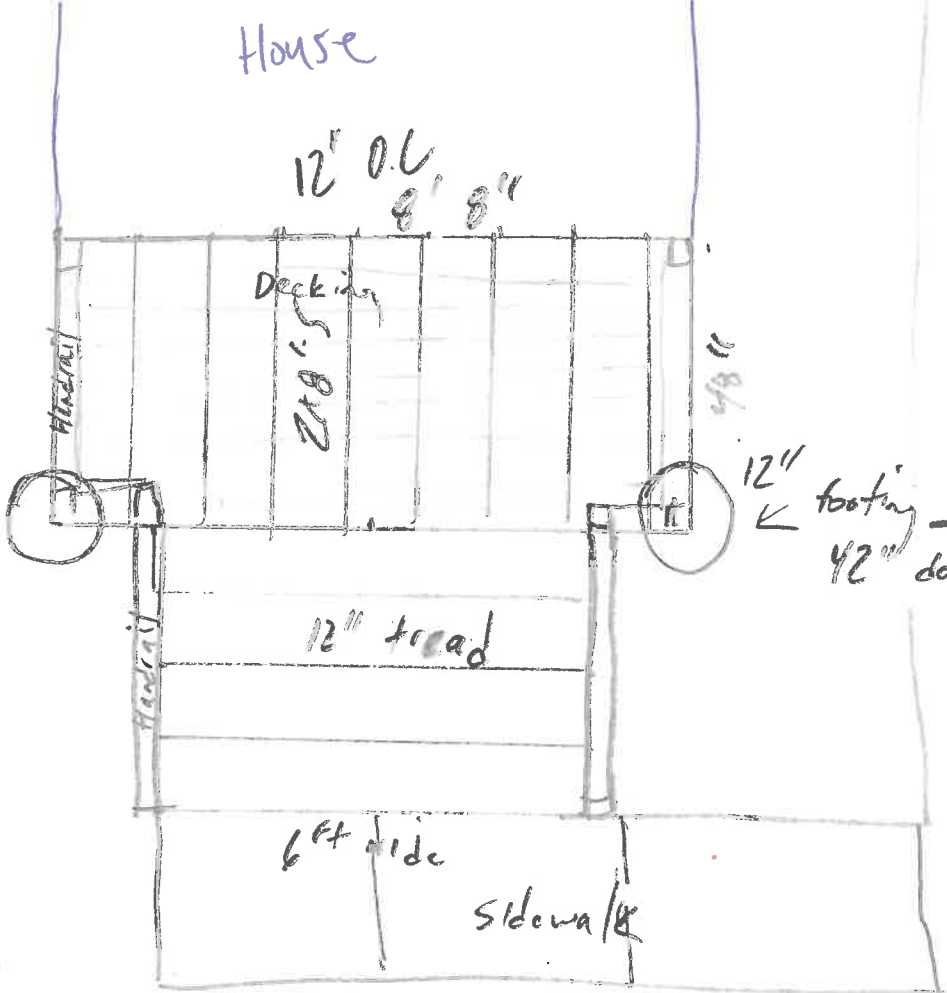 House
12' O.C.
8' 8"
Decking
2x8's
Handrail
48"
12"
← footing
42" do
12" tread
Handrail
6 Ft wide
Sidewalk